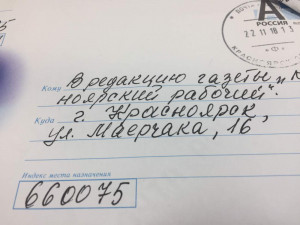 А
РОССИЯ
22 11 18 1 3
Кому В редакцию газеты „К
ноярский рабочий".
Куда г. Красноярск,
ул. Маерчака, 16,
Индекс места назначения
660075